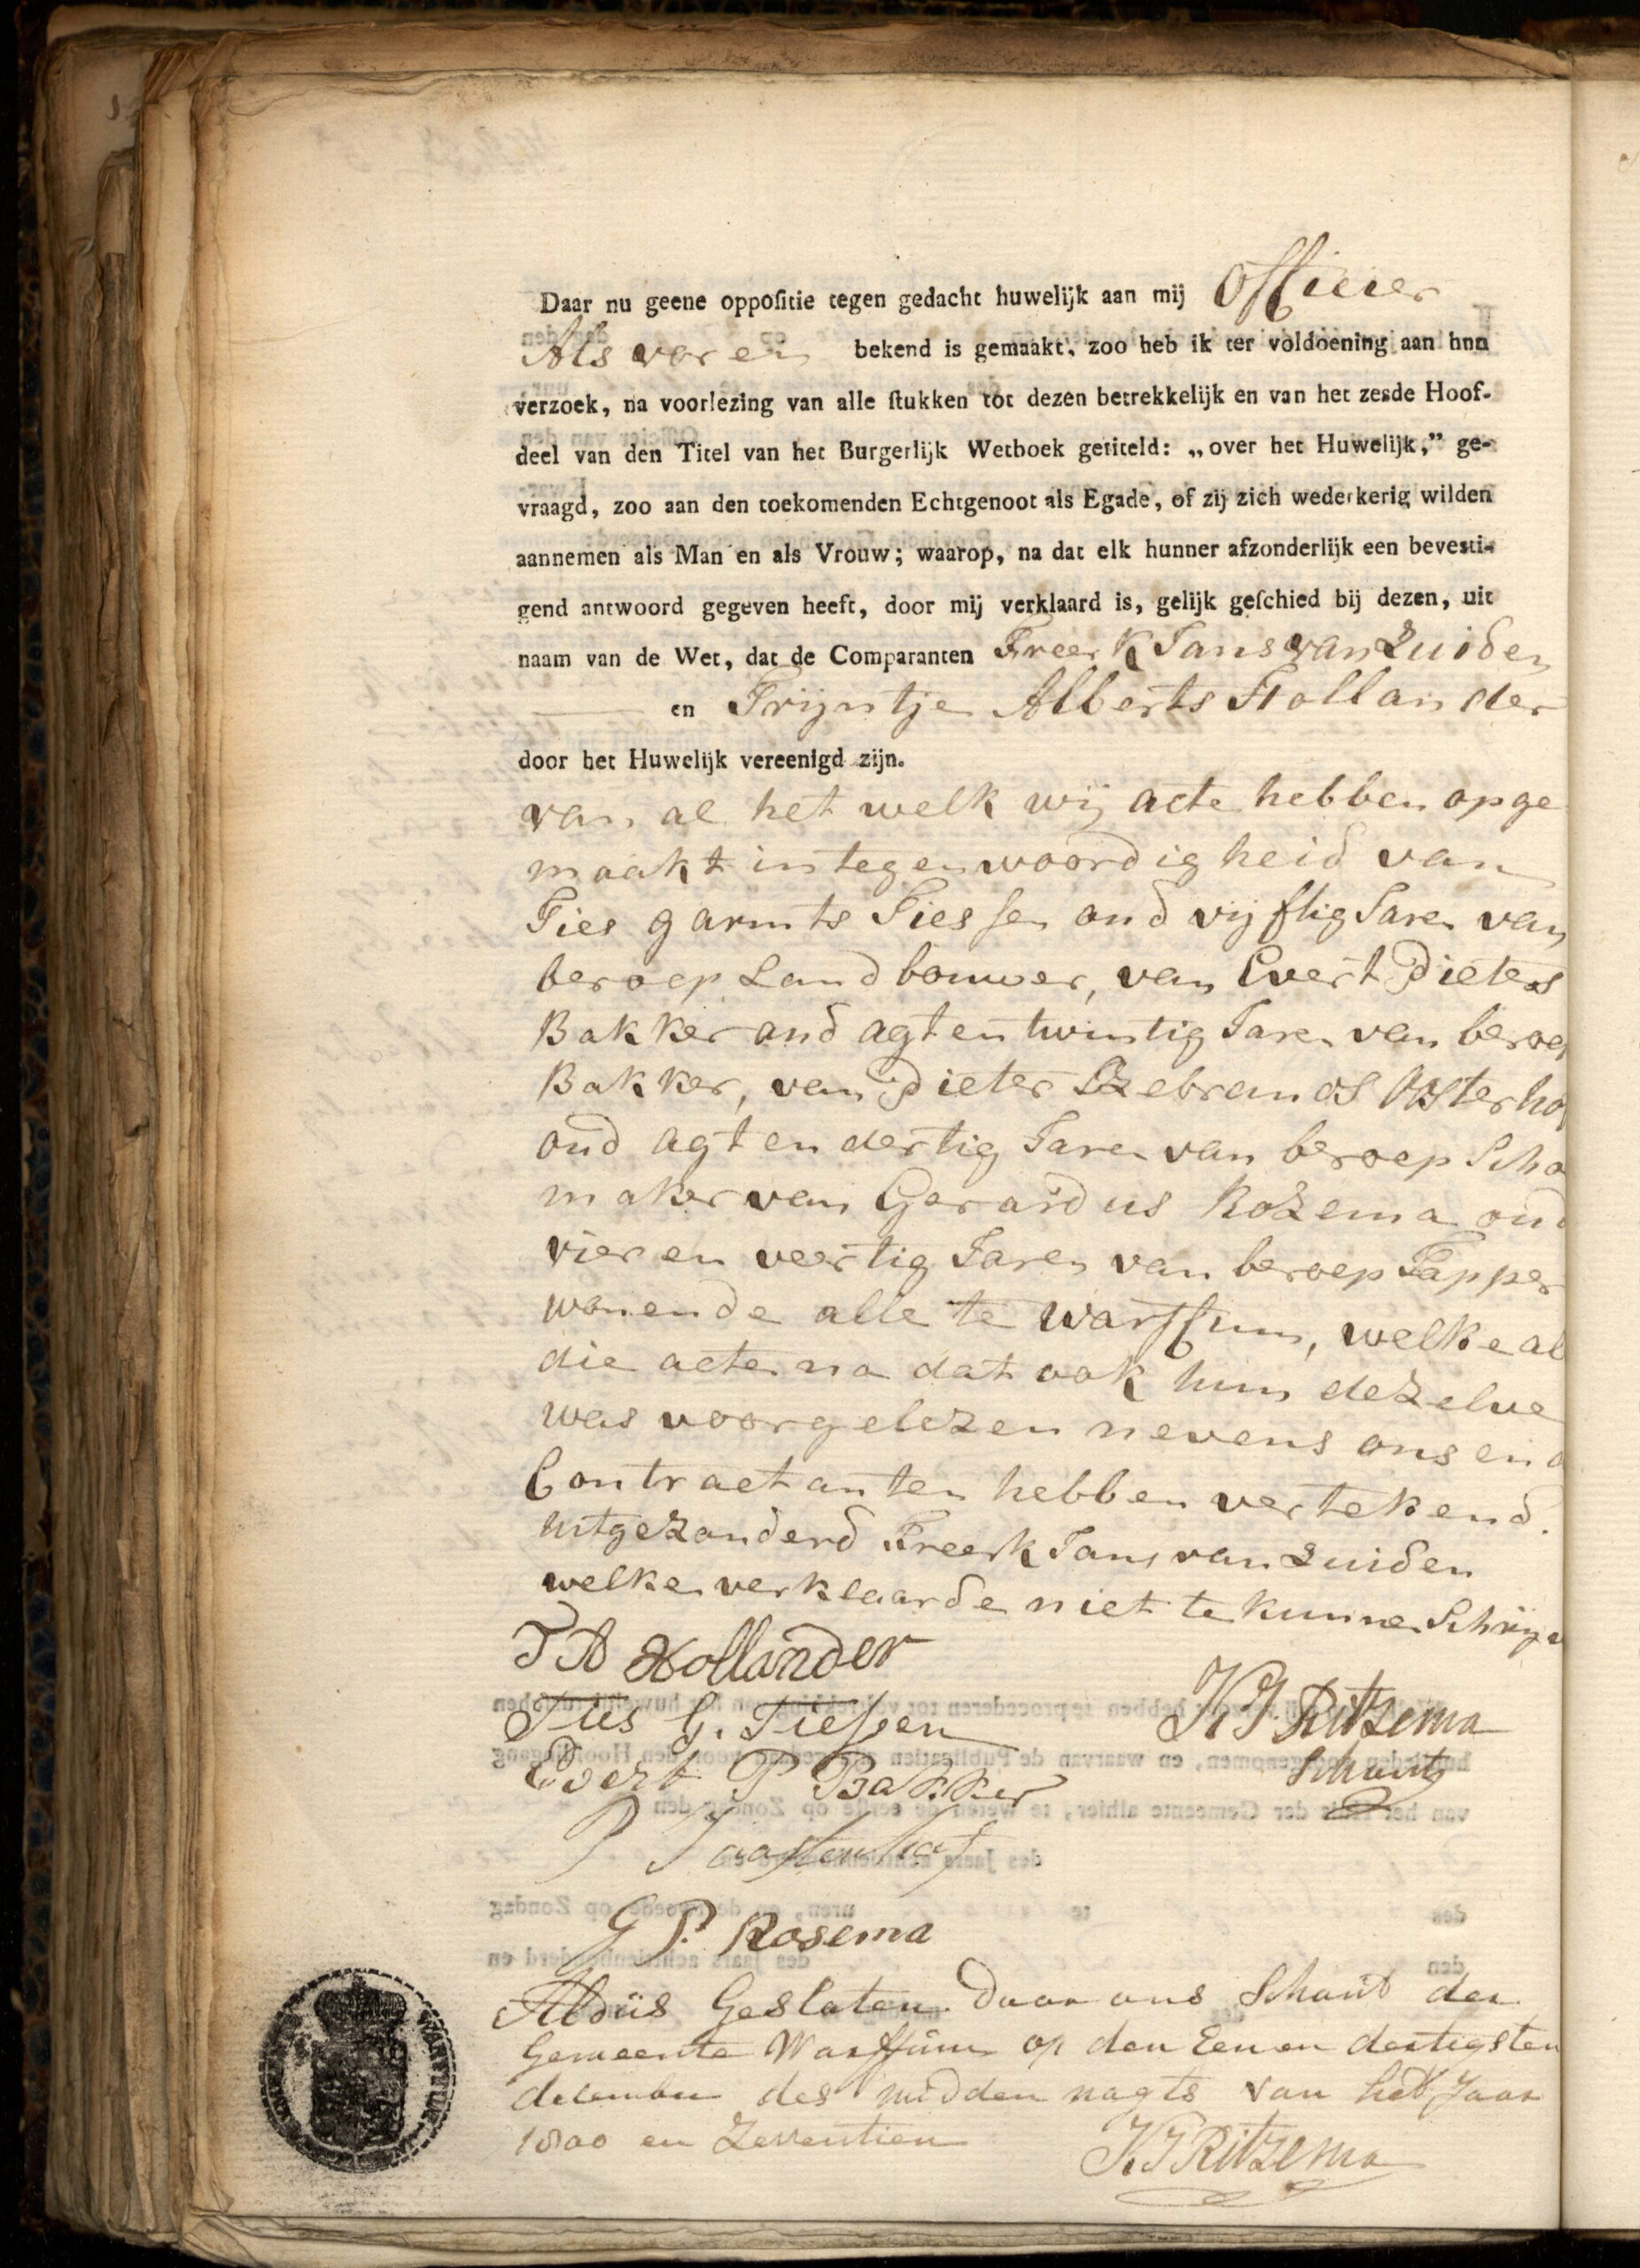 Daar nu geene oppositie tegen gedacht huwelijk aan mij Officier
Als voren bekend is gemaakt, zoo heb ik ter voldoening aan hnn
verzoek, na voorlezing van alle stukken tot dezen betrekkelijk en van het zesde Hoof-
deel van den Titel van het Burgerlijk Wetboek getiteld: „over het Huwelijk,” ge-
vraagd, zoo aan den toekomenden Echtgenoot als Egade, of zij zich wederkerig wilden
aannemen als Man en als Vrouw; waarop, na dat elk hunner afzonderlijk een bevesti-
gend antwoord gegeven heeft, door mij verklaard is, gelijk geschied bij dezen, uit
naam van de Wet, dat de Comparanten Freerk Jans van Zuiden
en Trijntje Alberts Hollander
door het Huwelijk vereenigd zijn.
van al het welk wij acte hebben opge
maakt in tegenwoordigheid van
Ties garmts Tiessen oud vijftig Jaren van
beroep Landbouwer, van Evert Pieters
Bakker oud agt en twintig Jaren van beroep
Bakker, van Pieter Izebrands Oosterhof
oud agt en dertig Jaren van beroep Scho
maker van Gerardus Rozema oud
vier en veertig Jaren van beroep Tapper
wonende alle te Warffum, welke al
die acte na dat ook hun dezelve
was voorgelezen nevens ons en d
Contractanten hebben vertekend.
uitgezonderd Freerk Jans van Zuiden
welke verklaarde niet te kunnen Schrijve
T A Hollander
Ties G. Tiessen
K J. Ritzema
Schout
Evert P Bakker
P J Oosterhof
G P. Rosema
Aldus Gesloten door ons Schout der
Gemeente Warffum op den Een en dertigsten
december des midden nagts van het Jaar
1800 en Zeventien
K J Ritzema